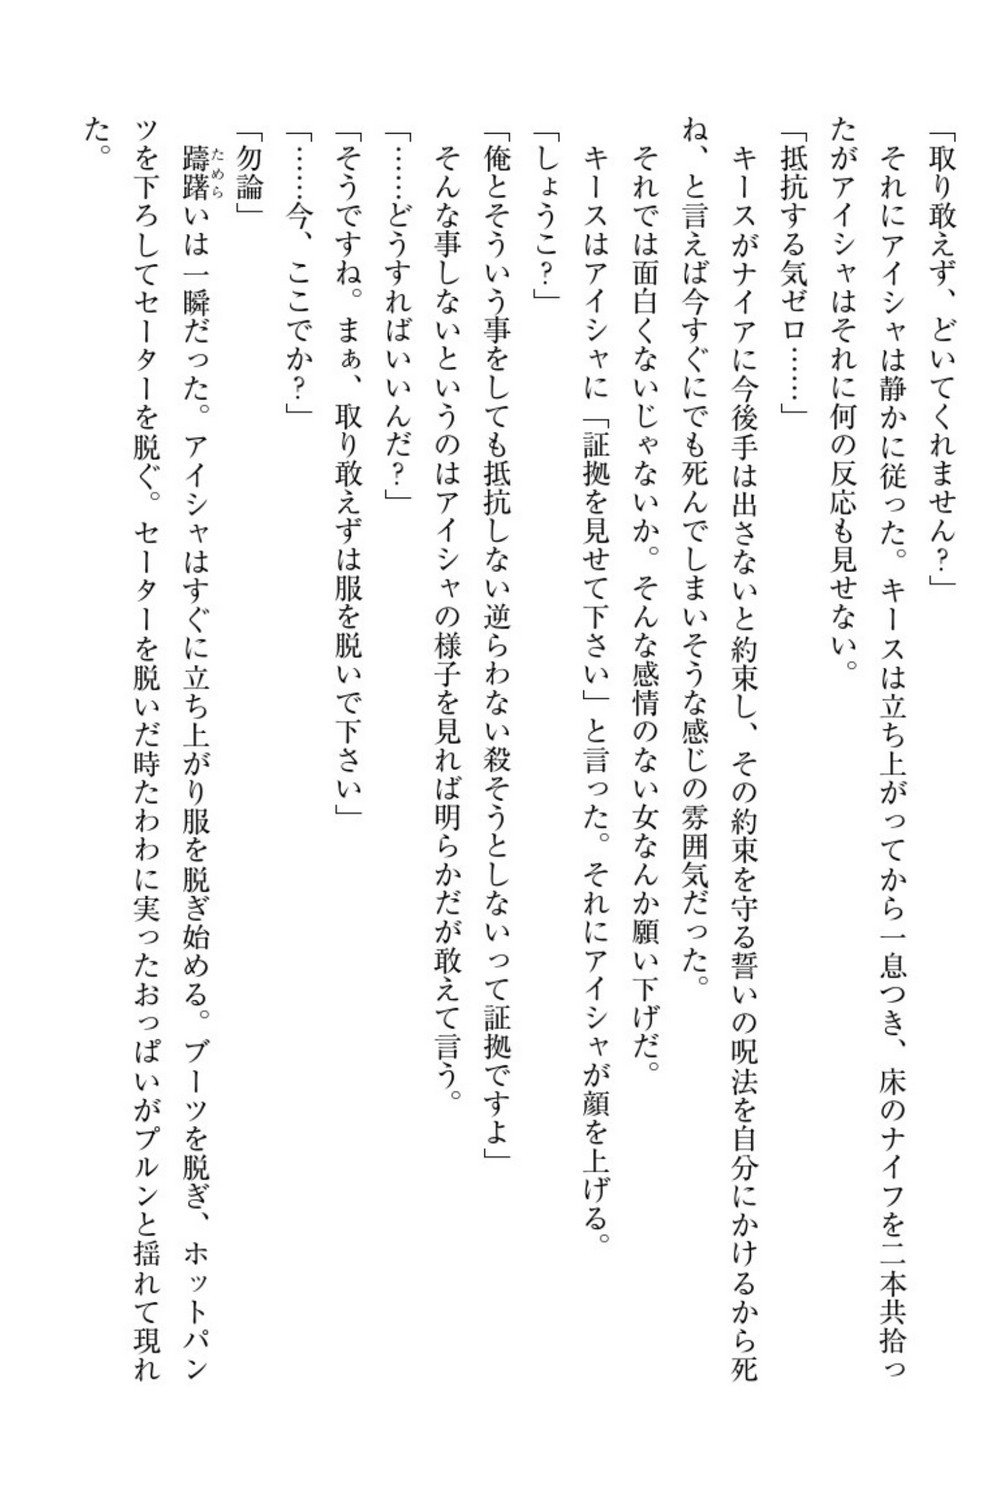 「取り敢えず、どいてくれません？」
それにアイシャは静かに従った。キースは立ち上がってから一息つき、床のナイフを二本共拾っ
たがアイシャはそれに何の反応も見せない。
「抵抗する気ゼロ……」
キースがナイアに今後手は出さないと約束し、その約束を守る誓いの呪法を自分にかけるから死
ね、と言えば今すぐにでも死んでしまいそうな感じの雰囲気だった。
それでは面白くないじゃないか。そんな感情のない女なんか願い下げだ。
キースはアイシャに「証拠を見せて下さい」と言った。それにアイシャが顔を上げる。
「しょうこ？」
「俺とそういう事をしても抵抗しない逆らわない殺そうとしないって証拠ですよ」
そんな事しないというのはアイシャの様子を見れば明らかだが敢えて言う。
「……どうすればいいんだ？」
「そうですね。まぁ、取り敢えずは服を脱いで下さい」
「……今、ここでか？」
「勿論」
躊躇いは一瞬だった。アイシャはすぐに立ち上がり服を脱ぎ始める。ブーツを脱ぎ、ホットパン
ためら
ツを下ろしてセーターを脱ぐ。セーターを脱いだ時たわわに実ったおっぱいがプルンと揺れて現れ
た。